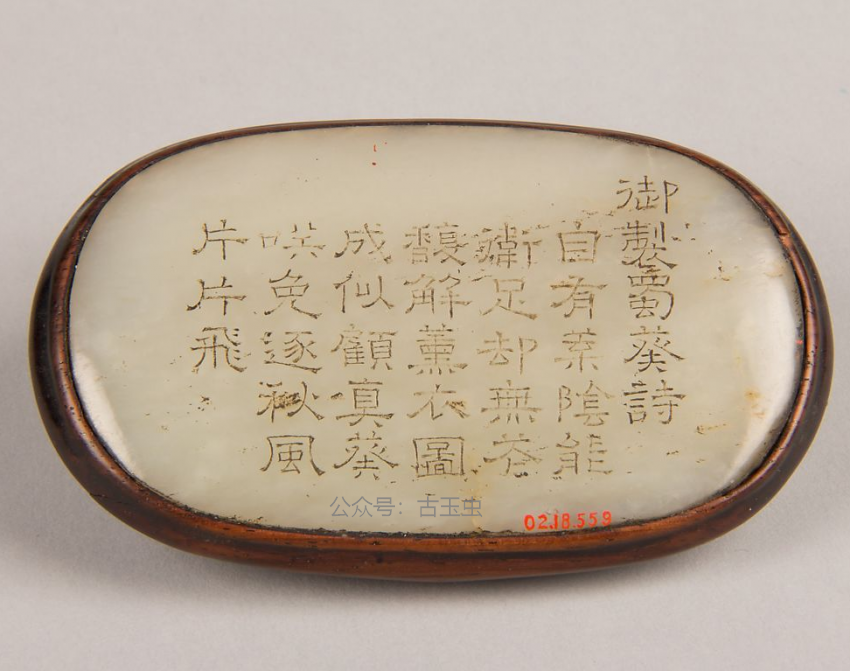 御製蜀葵詩
自有葉陰能
衛足却無花
馥解薰衣圖
成似顧真葵
哄免逐秋風
片片飛
公众号：古玉虫
02.18.559